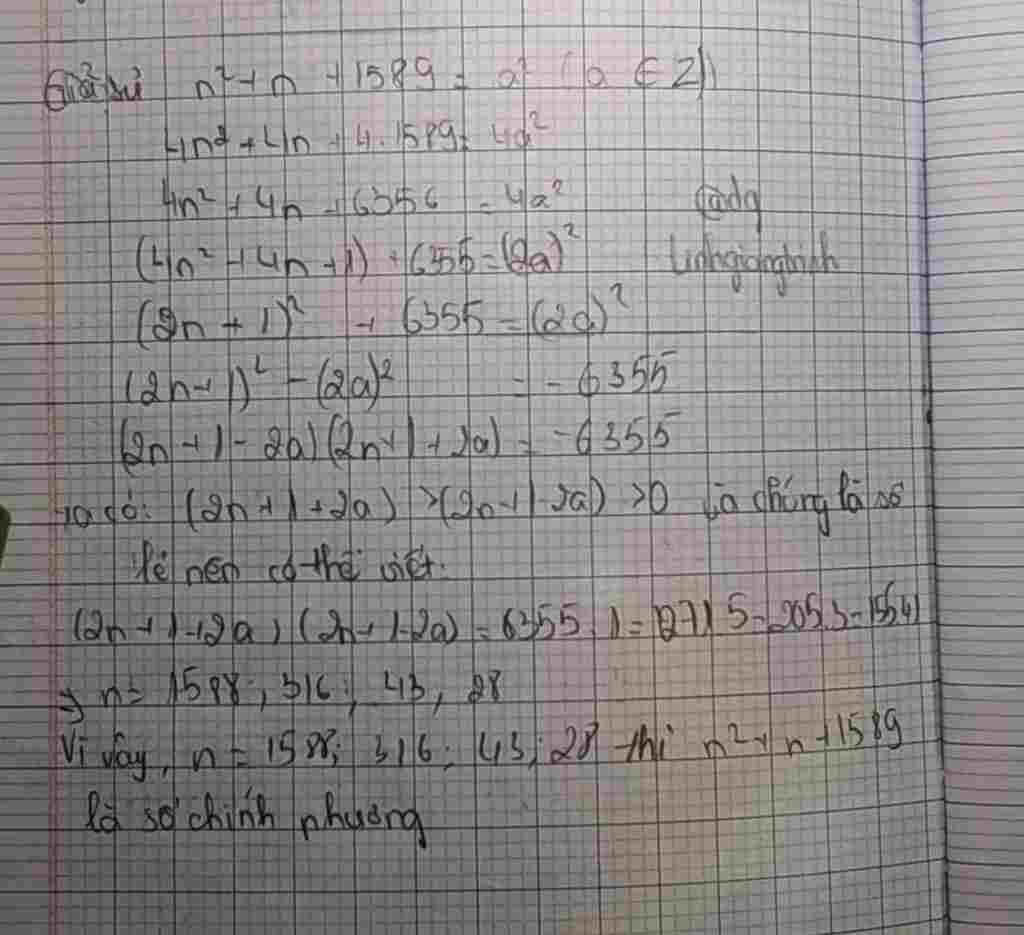 Giả sử n² + n + 1589 = a² (a ∈ Z)
4n² + 4n + 4.1589 = 4a²
4n² + 4n + 6356 = 4a² @dg
(4n² + 4n + 1) + 6355 = (2a)² Linhgiangbinh
(2n + 1)² + 6355 = (2a)²
(2n+1)² - (2a)² = -6355
(2n+1-2a)(2n+1+2a) = -6355
Ta có: (2n+1+2a) > (2n+1-2a) > 0 và chúng là số
lẻ nên có thể viết:
(2n+1+2a)(2n+1-2a) = 6355.1 = 1271.5 = 205.3 = 155.41
⇒ n = 1588; 316; 43, 28
Vì vậy, n = 1588; 316; 43; 28 thì n² + n + 1589
là số chính phương